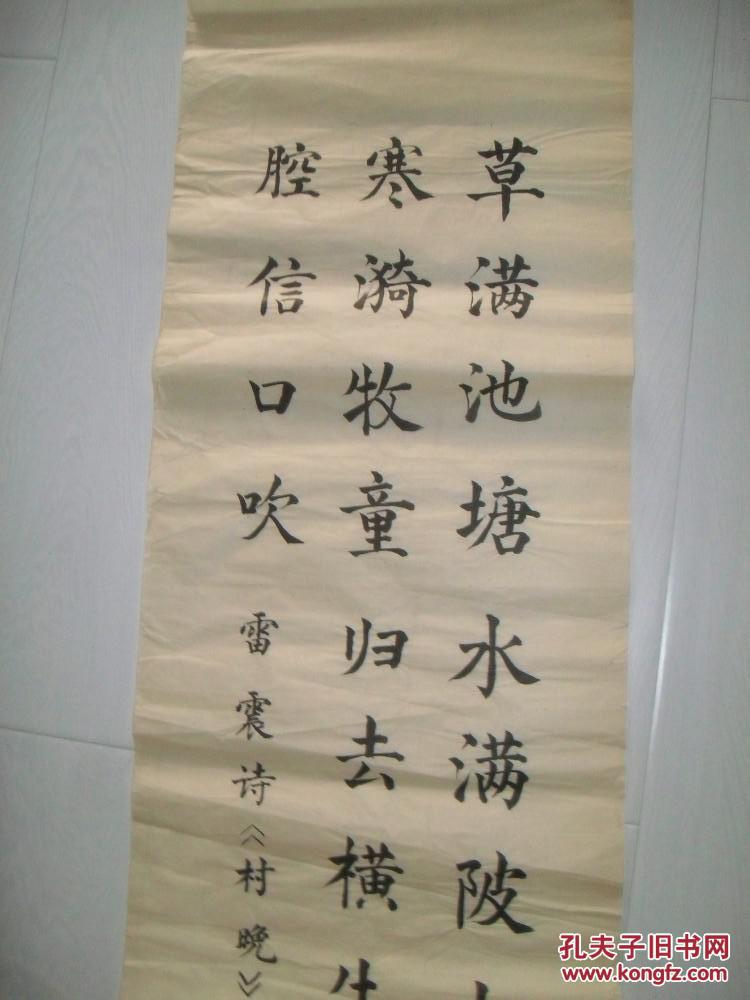 草满池塘水满陂
寒漪牧童归去横
腔信口吹
雷震诗《村晚》
孔夫子旧书网
www.kongfz.com